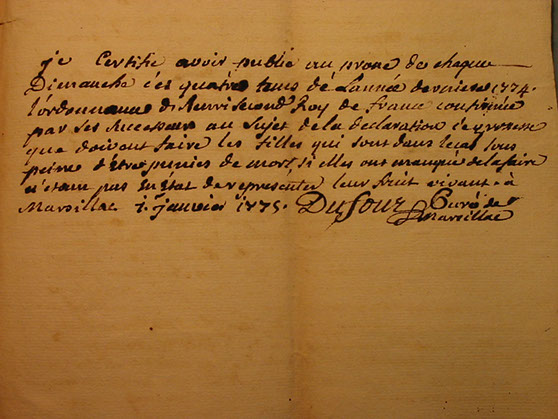 je Certifie avoir publié au prone de chaque
Dimanche des quatre tems de L'année derniere 1774.
l'ordonnance d'henri second Roy de france confirmée
par ses successeurs au sujet de la declaration de grossesse
que doivent faire les filles qui sont dans le cas sous
peine d'être punies de mort, si elles ont manqué de la faire
n'étant pas en état de representer leur fruit vivant. à
Marsillac 1. janvier 1775. Dufour Curé de
Marsillac